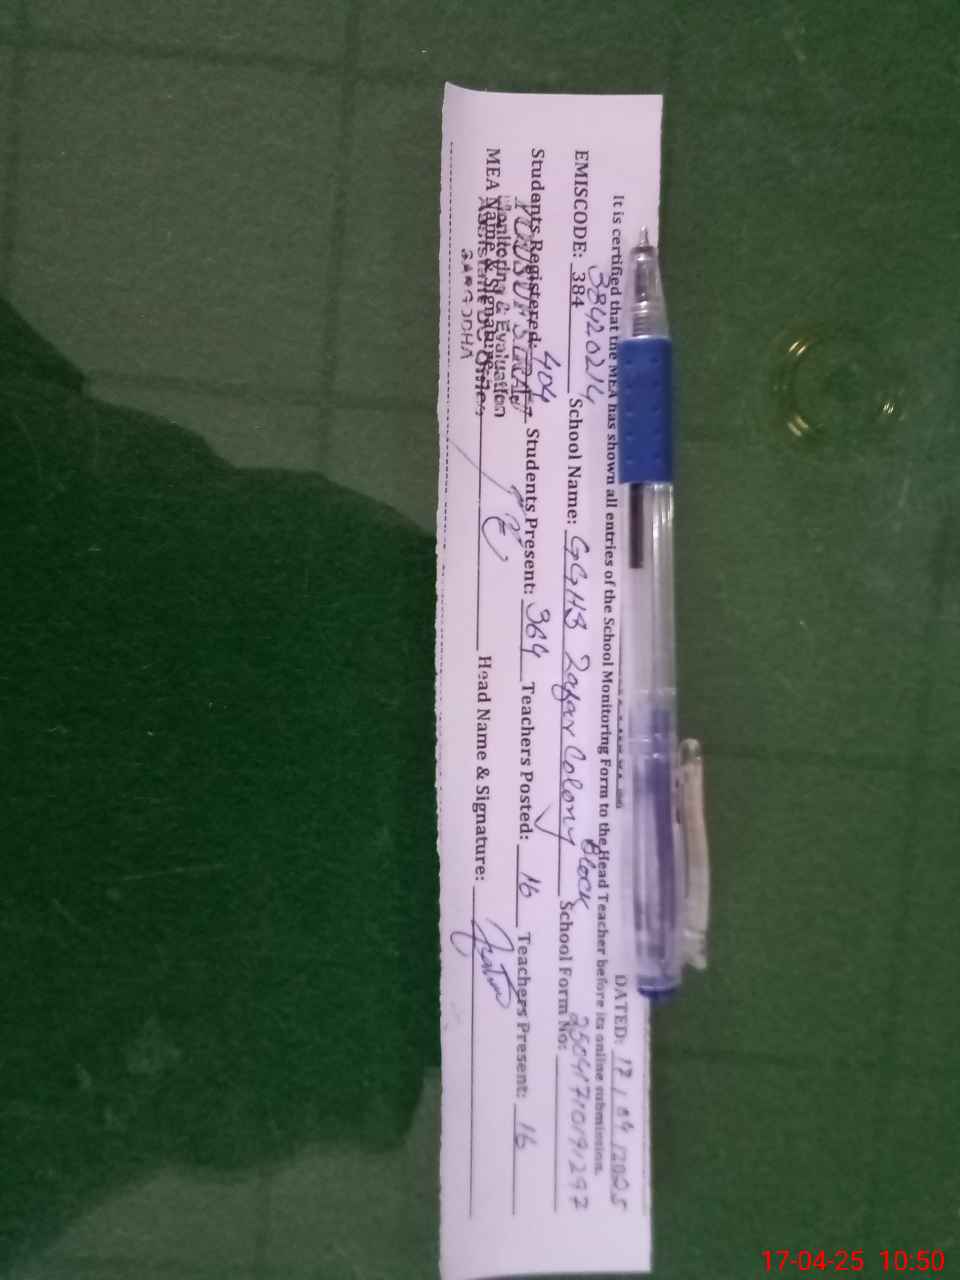 DATED: 17/04/2025
It is certified that the MEA has shown all entries of the School Monitoring Form to the Head Teacher before its online submission.
38420214 Block
EMISCODE: 384 School Name: GGHS Zafar Colony School Form No: 25041710191297
Students Registered: 404 Students Present: 364 Teachers Posted: 16 Teachers Present: 16
Monitoring & Evaluation
MEA Name & Signature: Head Name & Signature:
SARGODHA
17-04-25 10:50